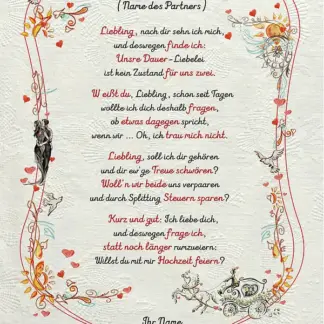 ( Name des Partners )
Liebling, nach dir sehn ich mich,
und deswegen finde ich:
Unsre Dauer-Liebelei
ist kein Zustand für uns zwei.
Weißt du, Liebling, schon seit Tagen
wollte ich dich deshalb fragen,
ob etwas dagegen spricht,
wenn wir ... Oh, ich trau mich nicht.
Liebling, soll ich dir gehören
und dir ew'ge Treue schwören?
Woll'n wir beide uns verpaaren
und durch Splitting Steuern sparen?
Kurz und gut: Ich liebe dich,
und deswegen frage ich,
statt noch länger rumzueiern:
Willst du mit mir Hochzeit feiern?
Ihr Name